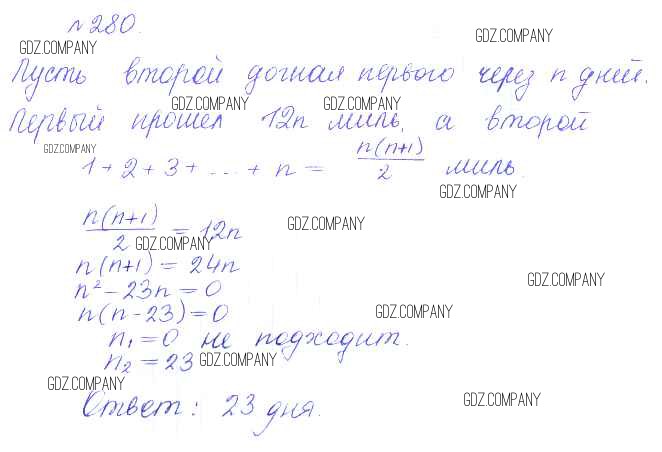 №280.
GDZ.COMPANY
GDZ.COMPANY
Пусть второй догнал первого через n дней.
GDZ.COMPANY GDZ.COMPANY
Первый прошел 12n миль, а второй
GDZ.COMPANY
1 + 2 + 3 + ... + n = n(n+1)/2 миль.
GDZ.COMPANY
n(n+1)/2 = 12n
GDZ.COMPANY
GDZ.COMPANY
n(n+1) = 24n
GDZ.COMPANY
n² - 23n = 0
n(n-23) = 0
GDZ.COMPANY
n₁ = 0 не подходит.
n₂ = 23
GDZ.COMPANY
GDZ.COMPANY
Ответ: 23 дня.
GDZ.COMPANY